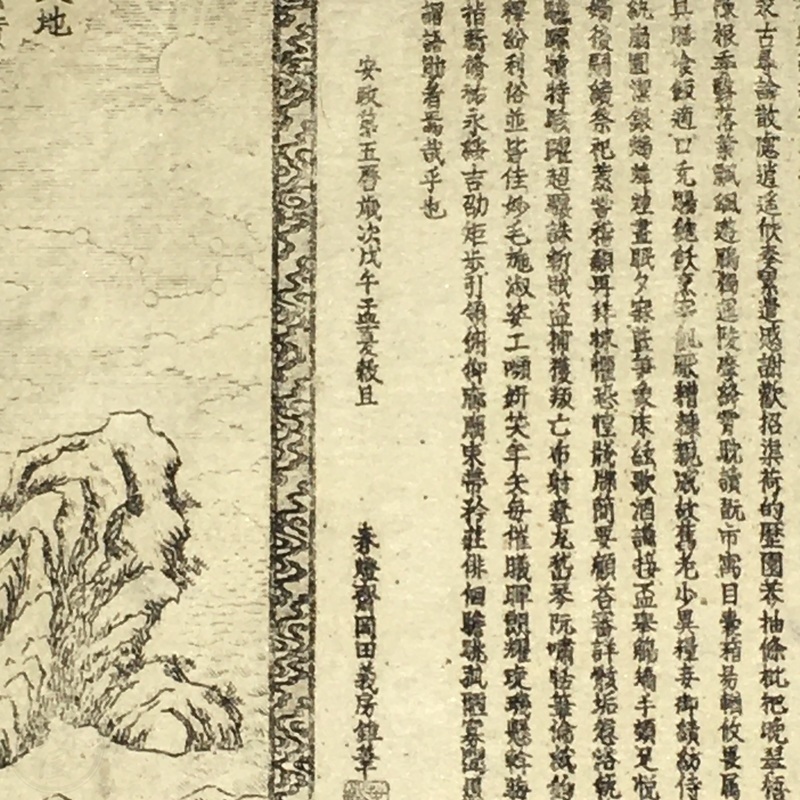 求古尋論散慮逍遙欣奏累遣慼謝歡招渠荷的歷園莽抽條枇杷晚翠梧
陳根委翳落葉飄颻遊鵾獨運凌摩絳霄耽讀翫市寓目囊箱易輶攸畏屬
具膳飡飯適口充腸飽飫烹宰飢厭糟糠親戚故舊老少異糧妾御績紡侍
紈扇圓潔銀燭煒煌晝眠夕寐藍笋象床絃歌酒讌接盃舉觴矯手頓足悅
嫡後嗣續祭祀蒸嘗稽顙再拜悚懼恐惶牋牒簡要顧答審詳骸垢想浴執
驢騾犢特駭躍超驤誅斬賊盜捕獲叛亡布射遼丸嵇琴阮嘯恬筆倫紙鈞
釋紛利俗並皆佳妙毛施淑姿工嚬妍笑年矢每催曦暉朗耀琁璣懸斡晦
指薪脩祜永綏吉劭矩步引領俯仰廊廟束帶矜莊徘徊瞻眺孤陋寡聞愚
謂語助者焉哉乎也
安政第五曆歲次戊午孟夏穀旦
春燈齋岡田義房鐫
地